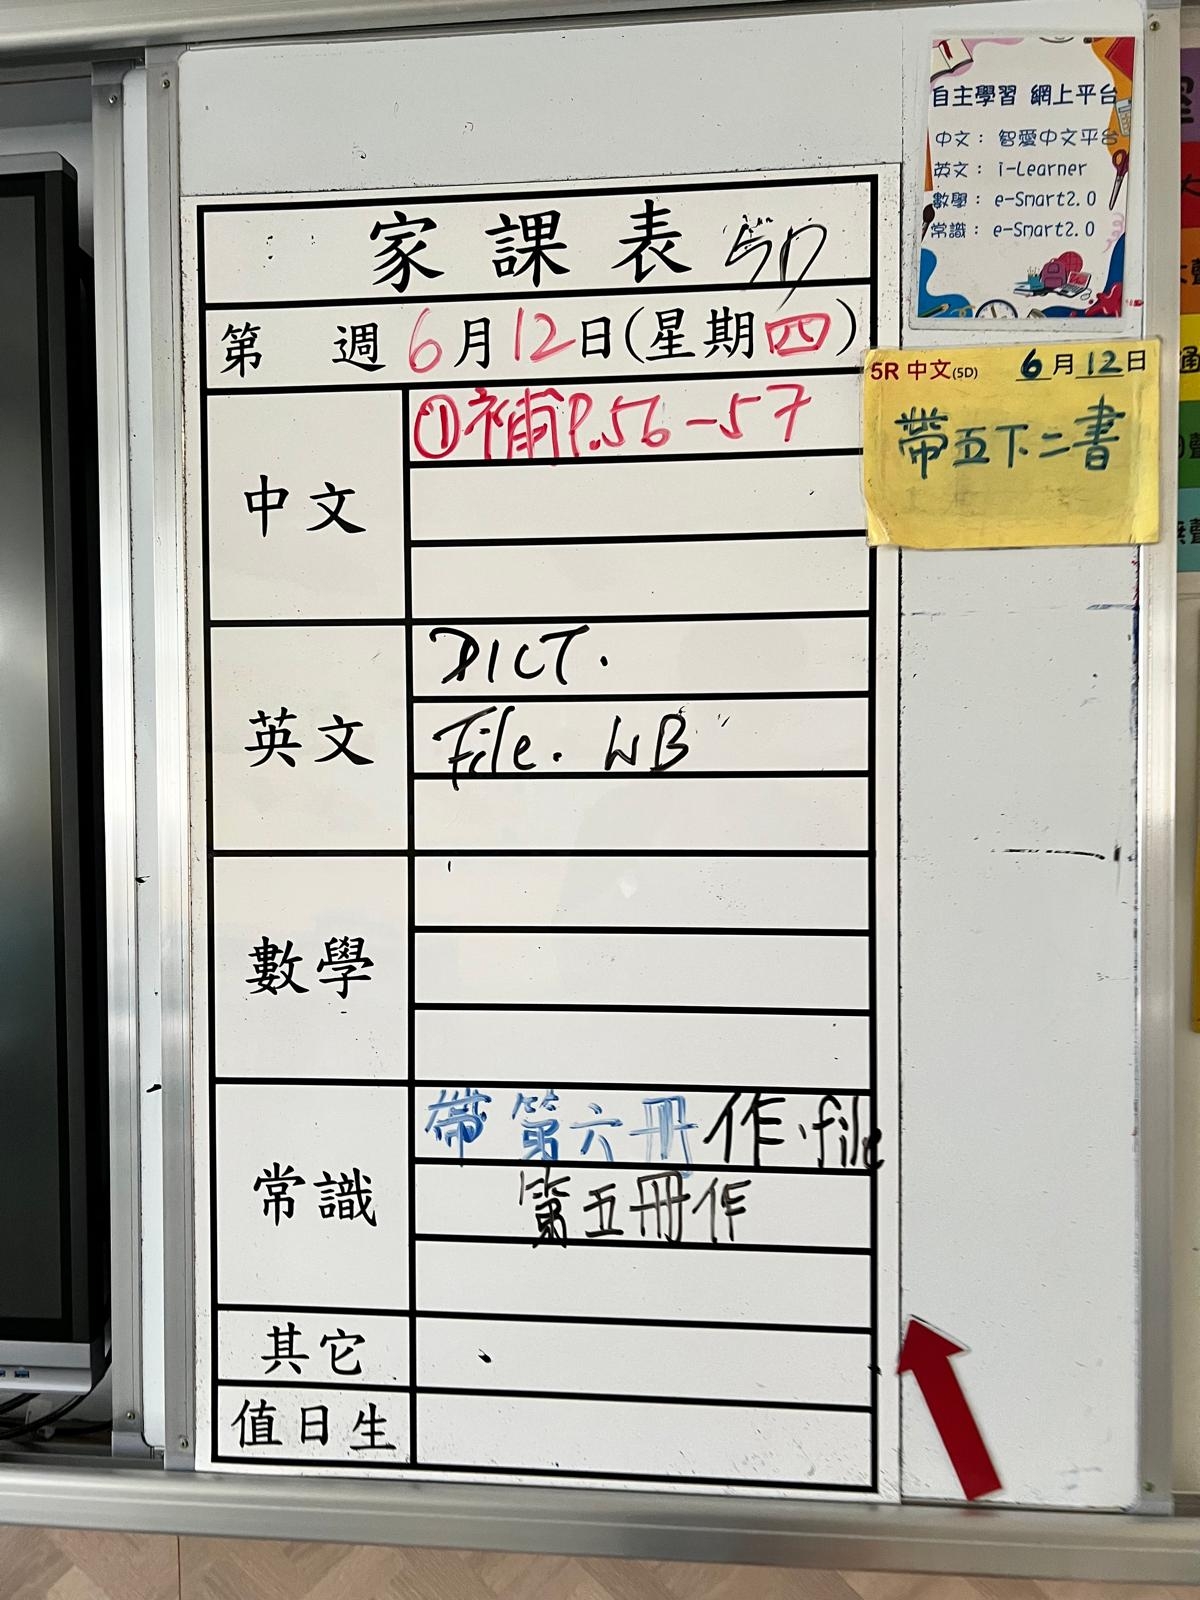 家課表 5D
第 週 6月12日(星期四)
中文
①補P.56-57
英文
DICT.
File. WB
數學
常識
帶 第六冊 作.file
第五冊作
其它
值日生
自主學習 網上平台
中文： 智愛中文平台
英文： i-Learner
數學： e-Smart2.0
常識： e-Smart2.0
5R 中文(5D) 6月12日
帶五下二書